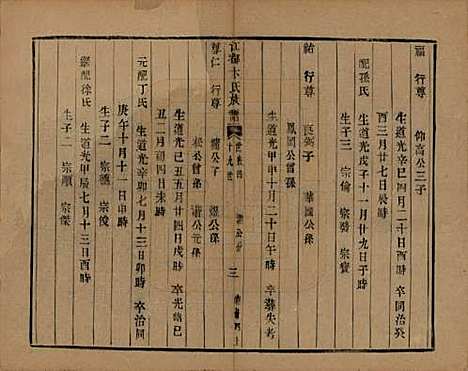 福 行尊 仰高公三子
生道光辛巳四月二十日酉時 卒同治癸
酉三月廿七日辰時
配孫氏 生道光戊子十一月廿九日子時
生子三 宗倫 宗 宗寶
祜 行尊 子 公孫
鳳國公曾孫
生道光甲申十月二十日午時 卒葬失考
江都卞氏族譜 十九世 三
尊仁 行尊 公子 公孫
松公曾孫 公元孫
生道光己丑五月廿四日戌時 卒光緒己
丑二月初四日未時
元配丁氏 生道光辛卯七月十三日卯時 卒同治
庚午十月十一日申時
生子二 宗 宗
繼配徐氏 生道光甲辰七月十三日酉時
生子二 宗順 宗傑